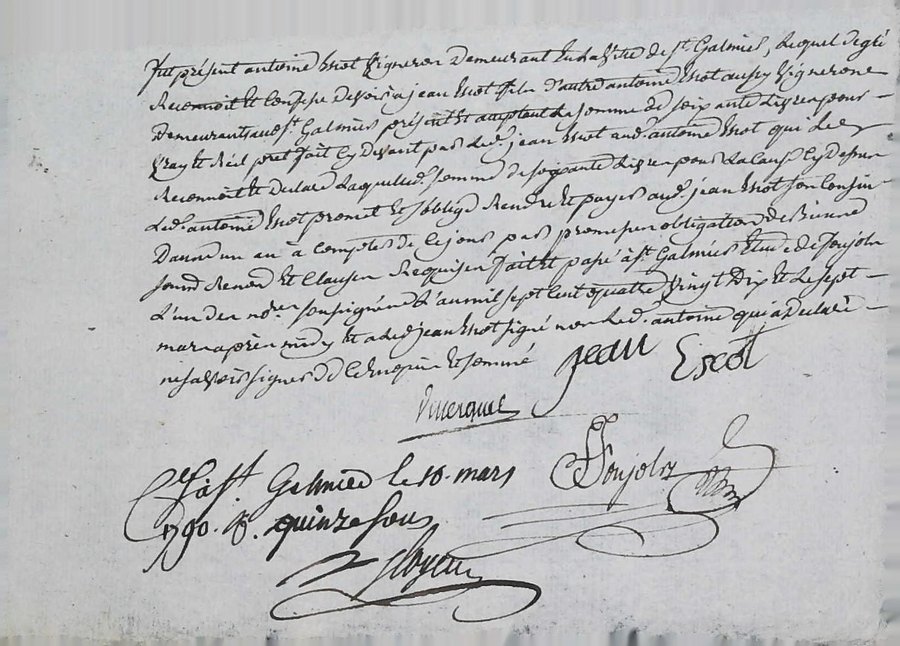 fut présent antoine Escot vigneron demeurant en la ville de St. Galmier, lequel de gré
Reconnoit et Confesse devoir a jean Escot fils d'autre antoine Escot aussy vigneron
demeurant aud. St. Galmier présent et acceptant la somme de soixante livres pour
vray et Réel prêt fait cy devant par led. jean Escot aud. antoine Escot qui le
Reconnoit et declare laquelle d. somme de soixante livres pour la cause cy dessus
led. antoine Escot promet et s'oblige Rendre et payer aud. jean Escot son Cousin
dans un an à compter de ce jour par promesse obligation de Biens
soumis. Renon. et Clauses Requises fait et passé à St. Galmier Etude de Poujolz
L'un des nores. soussignés L'an mil sept cent quatre vingt dix et le sept
mars après midy et a led. jean Escot signé non led. antoine qui a declaré
ne savoir signer de ce Enquis et sommé
jean Escot
à St. Galmier le 18. mars
1790. R. quinze sous
Poujolz